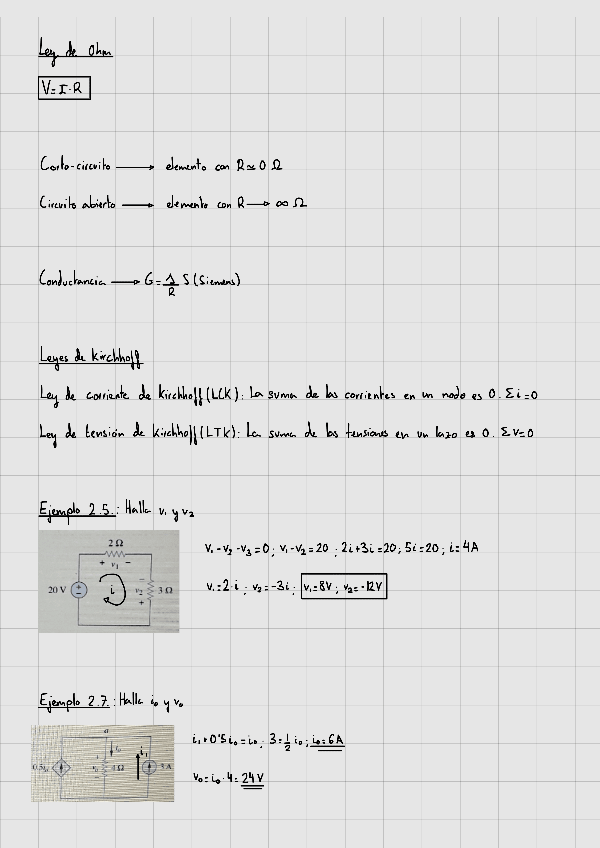 Ley de Ohm
V=I·R
Corto-circuito → elemento con R≃0 Ω
Circuito abierto → elemento con R → ∞ Ω
Conductancia → G=1/R S (Siemens)
Leyes de Kirchhoff
Ley de corriente de Kirchhoff (LCK): La suma de las corrientes en un nodo es 0. Σi=0
Ley de tensión de Kirchhoff (LTK): La suma de las tensiones en un lazo es 0. Σv=0
Ejemplo 2.5.: Halla v₁ y v₂
2 Ω
+ v₁ −
20 V
i
v₂
3 Ω
v₁-v₂-v₃=0; v₁-v₂=20; 2i+3i=20; 5i=20; i=4A
v₁=2·i; v₂=-3i; v₁=8V; v₂=-12V
Ejemplo 2.7.: Halla i₀ y v₀
a
0.5i₀
i₀
v₀
4 Ω
i₁
3 A
i₁+0'5i₀=i₀; 3=½i₀; i₀=6A
v₀=i₀·4=24V